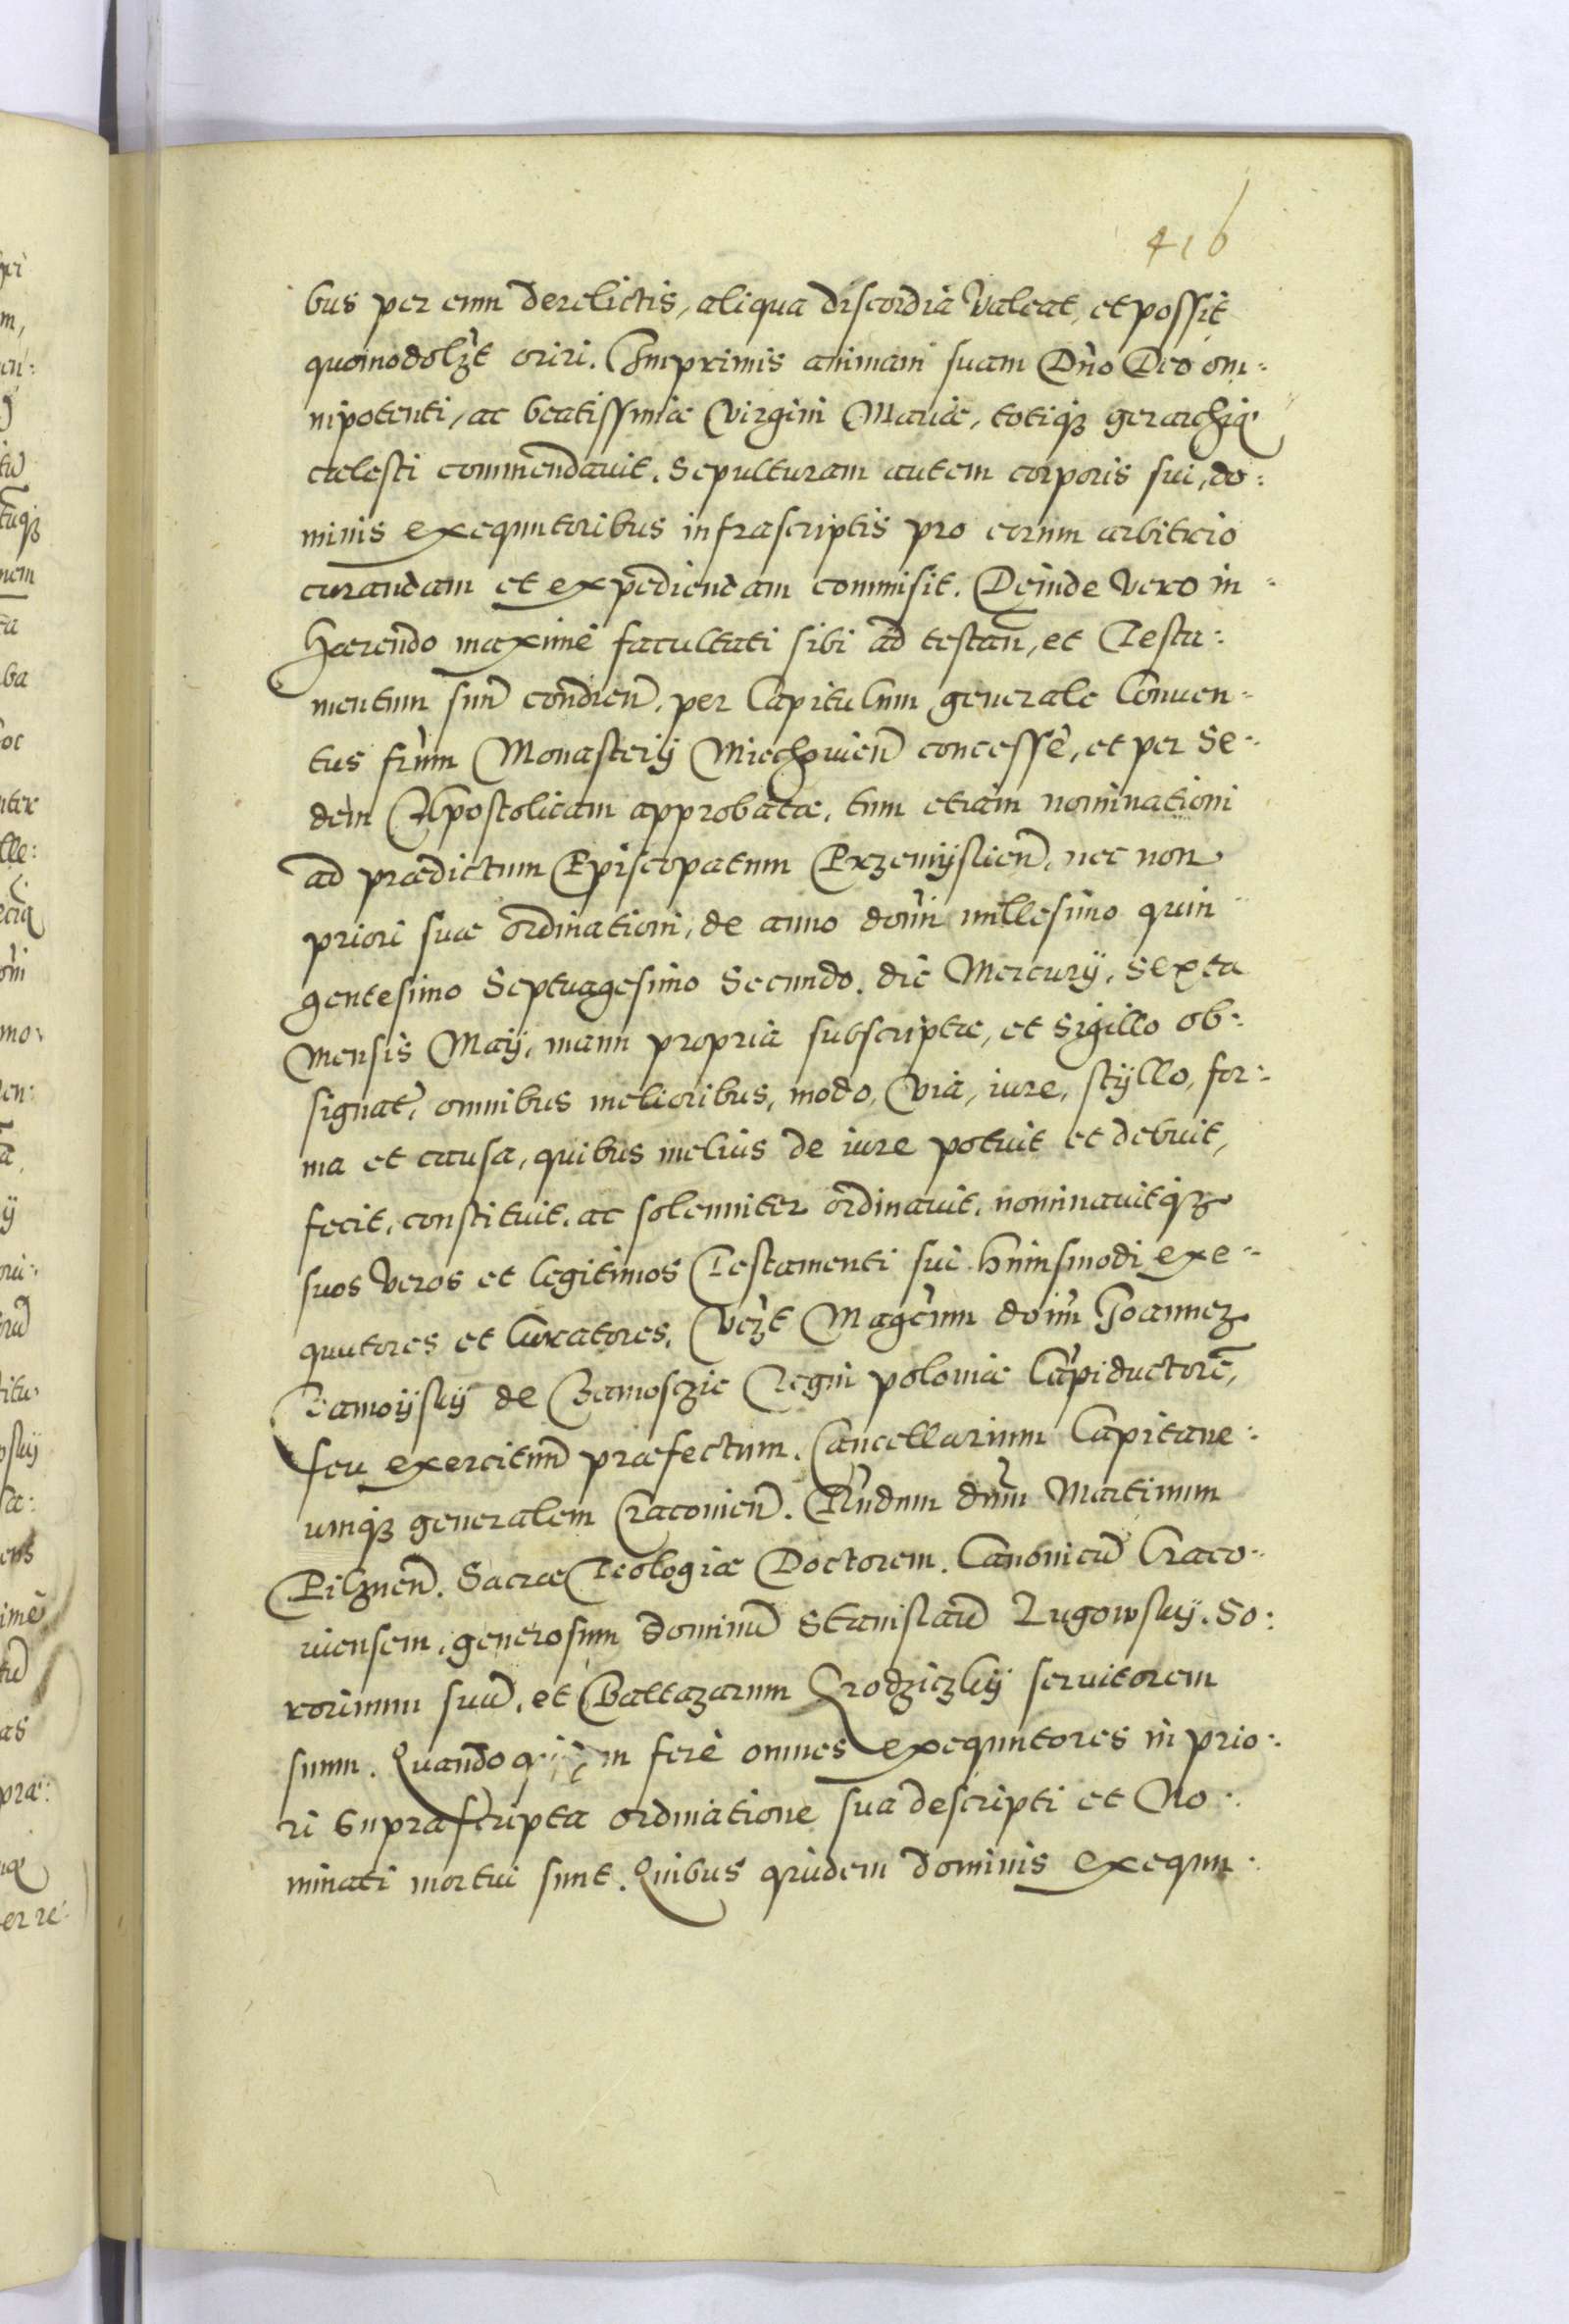 416
bus per eum derelictis, aliqua discordia valeat, et possit
quomodolꝫt oriri. Imprimis animam suam Dño Deo om:
nipotenti, ac beatissimæ Virgini Mariæ, totiqꝫ gerarchiæ
cælesti commendauit. Sepulturam autem corporis sui, do:
minis exequutoribus infrascriptis pro eorum arbitrio
curandam et expediendam commisit. Deinde vero in:
hærendo maxime facultati sibi ad testañ, et Testa:
mentum suũ condieñ, per Capitulum generale Conuen:
tus frũm Monasterij Miechouieñ concessę, et per Se:
dem Apostolicam approbatæ, tum etiam nominationi
ad prædictum Episcopatum Przemijslieñ, nec non
priori suæ ordinationi, de anno domĩ millesimo quin
gentesimo Septuagesimo Secundo, die Mercurij, Sexta
Mensis Maij, manu propria subscriptæ, et Sigillo ob:
signat̃, omnibus melioribus, modo, via, iure, stÿllo, for:
ma et causa, quibus melius de iure potuit et debuit,
fecit, constituit, ac solenniter ordinauit, nominauitqꝫ
suos veros et legitimos Testamenti sui huiusmodi exe:
quutores et Curatores, Veꝫt Magcũm domĩ Joannez
Zamoÿskÿ de Zamosczie Regni poloniæ Cãpiductorẽ,
seu exercituũ præfectum, Cancellarium Capitane:
umqꝫ generalem Cracouieñ. Rñdum dñm Martinum
Pilzneñ. Sacræ Teologiæ Doctorem. Canonicũ Craco:
uiensem, generosum dominũ Stanislaũ Lugowskÿ, So:
rorinum suũ, et Baltazarum Grodziczkÿ seruitorem
suum. Quandoq em fere omnes exequutores in prio:
ri suprascripta ordinatione sua descripti et No:
minati mortui sunt. Quibus quidem dominis exequu: